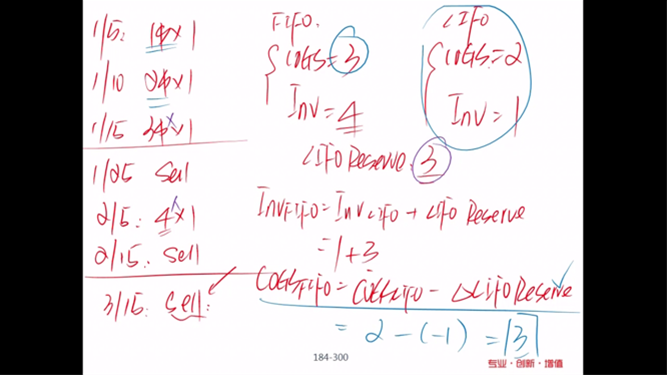 1/5: 1$×1
1/10 2$×1
1/15 3$×1
1/25 Sell
2/5: 4×1
2/15: Sell
3/15: Sell:
FIFO.
COGS=3
Inv=4
LIFO
COGS=2
Inv=1
LIFO Reserve 3
InvFIFO=InvLIFO+LIFO Reserve
=1+3
COGSFIFO=COGSLIFO-ΔLIFO Reserve
=2-(-1)=3
184-300
专业·创新·增值